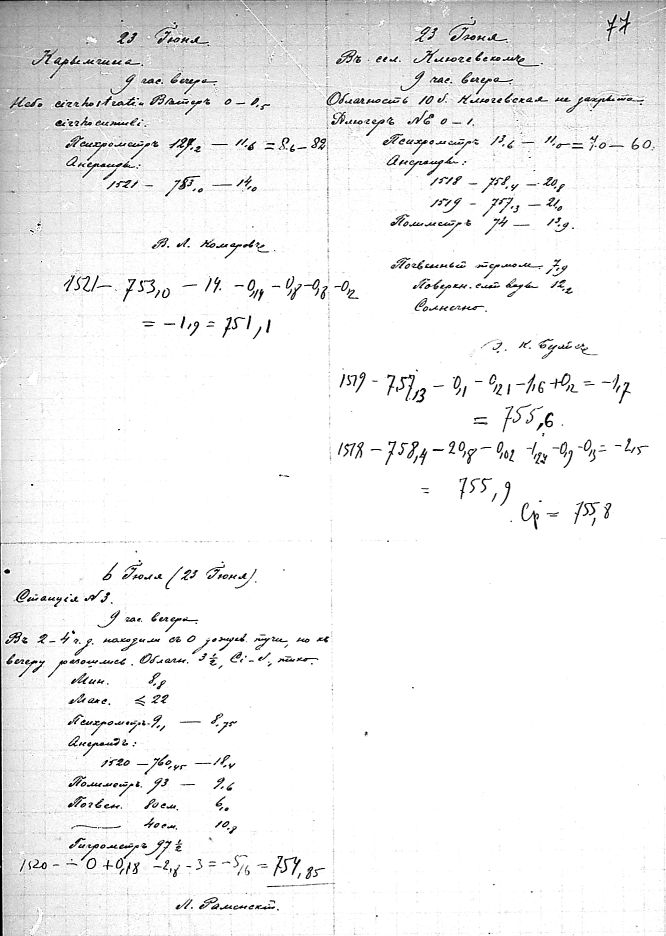 23 Іюня
Карымчина
9 час. вечера
Небо cirrhostrati. Вѣтеръ 0 – 0,5
cirrhocumuli.
Психрометръ 12,2 — 11,6 = 8,6 – 82
Анероиды:
1521 – 753,0 — 14,0
В. Л. Комаровъ.
1521 — 753,0 – 14. – 0,14 – 0,8 – 0,8 – 0,2
= – 1,9 = 751,1
77
23 Іюня
Въ сел. Ключевскомъ.
9 час. вечера
Облачность 10 б. Ключевская не закрыта
Флюгеръ NE 0 – 1.
Психрометръ 13,6 — 11,0 = 7.0 – 60.
Анероиды:
1518 – 758,4 – 20,8
1519 – 757,3 – 21,0
Полиметръ 74 — 13,9.
Почвенный термом. 7,9
Поверхн. воды 12,2
Солнечно.
1519 – 757,3 – 0,1 – 0,21 – 1,6 + 0,2 = – 1,7
= 755,6.
1518 – 758,4 – 20,8 – 0,02 – 1,27 – 0,9 – 0,3 = – 2,5
= 755,9
Ср = 755,8
6 Іюля (23 Іюня).
Станція № 3.
9 час. вечера
Въ 2 – 4 ч. д. находили съ O дождев. тучи, но къ
вечеру разошлись. Облачн. 3 ½, Ci – S, тихо.
Мин. 8,8
Макс. ≤ 22
Психрометръ 9,1 — 8,75
Анероидъ:
1520 – 760,45 – 18,4
Полиметръ 93 — 9,6
Почвен. 80 см. 6,0
— 40 см. 10,8
Гигрометръ 97 ½
1520 – – 0 + 0,18 – 2,8 – 3 = – 5,6 = 754,85
Л. Раменскій.